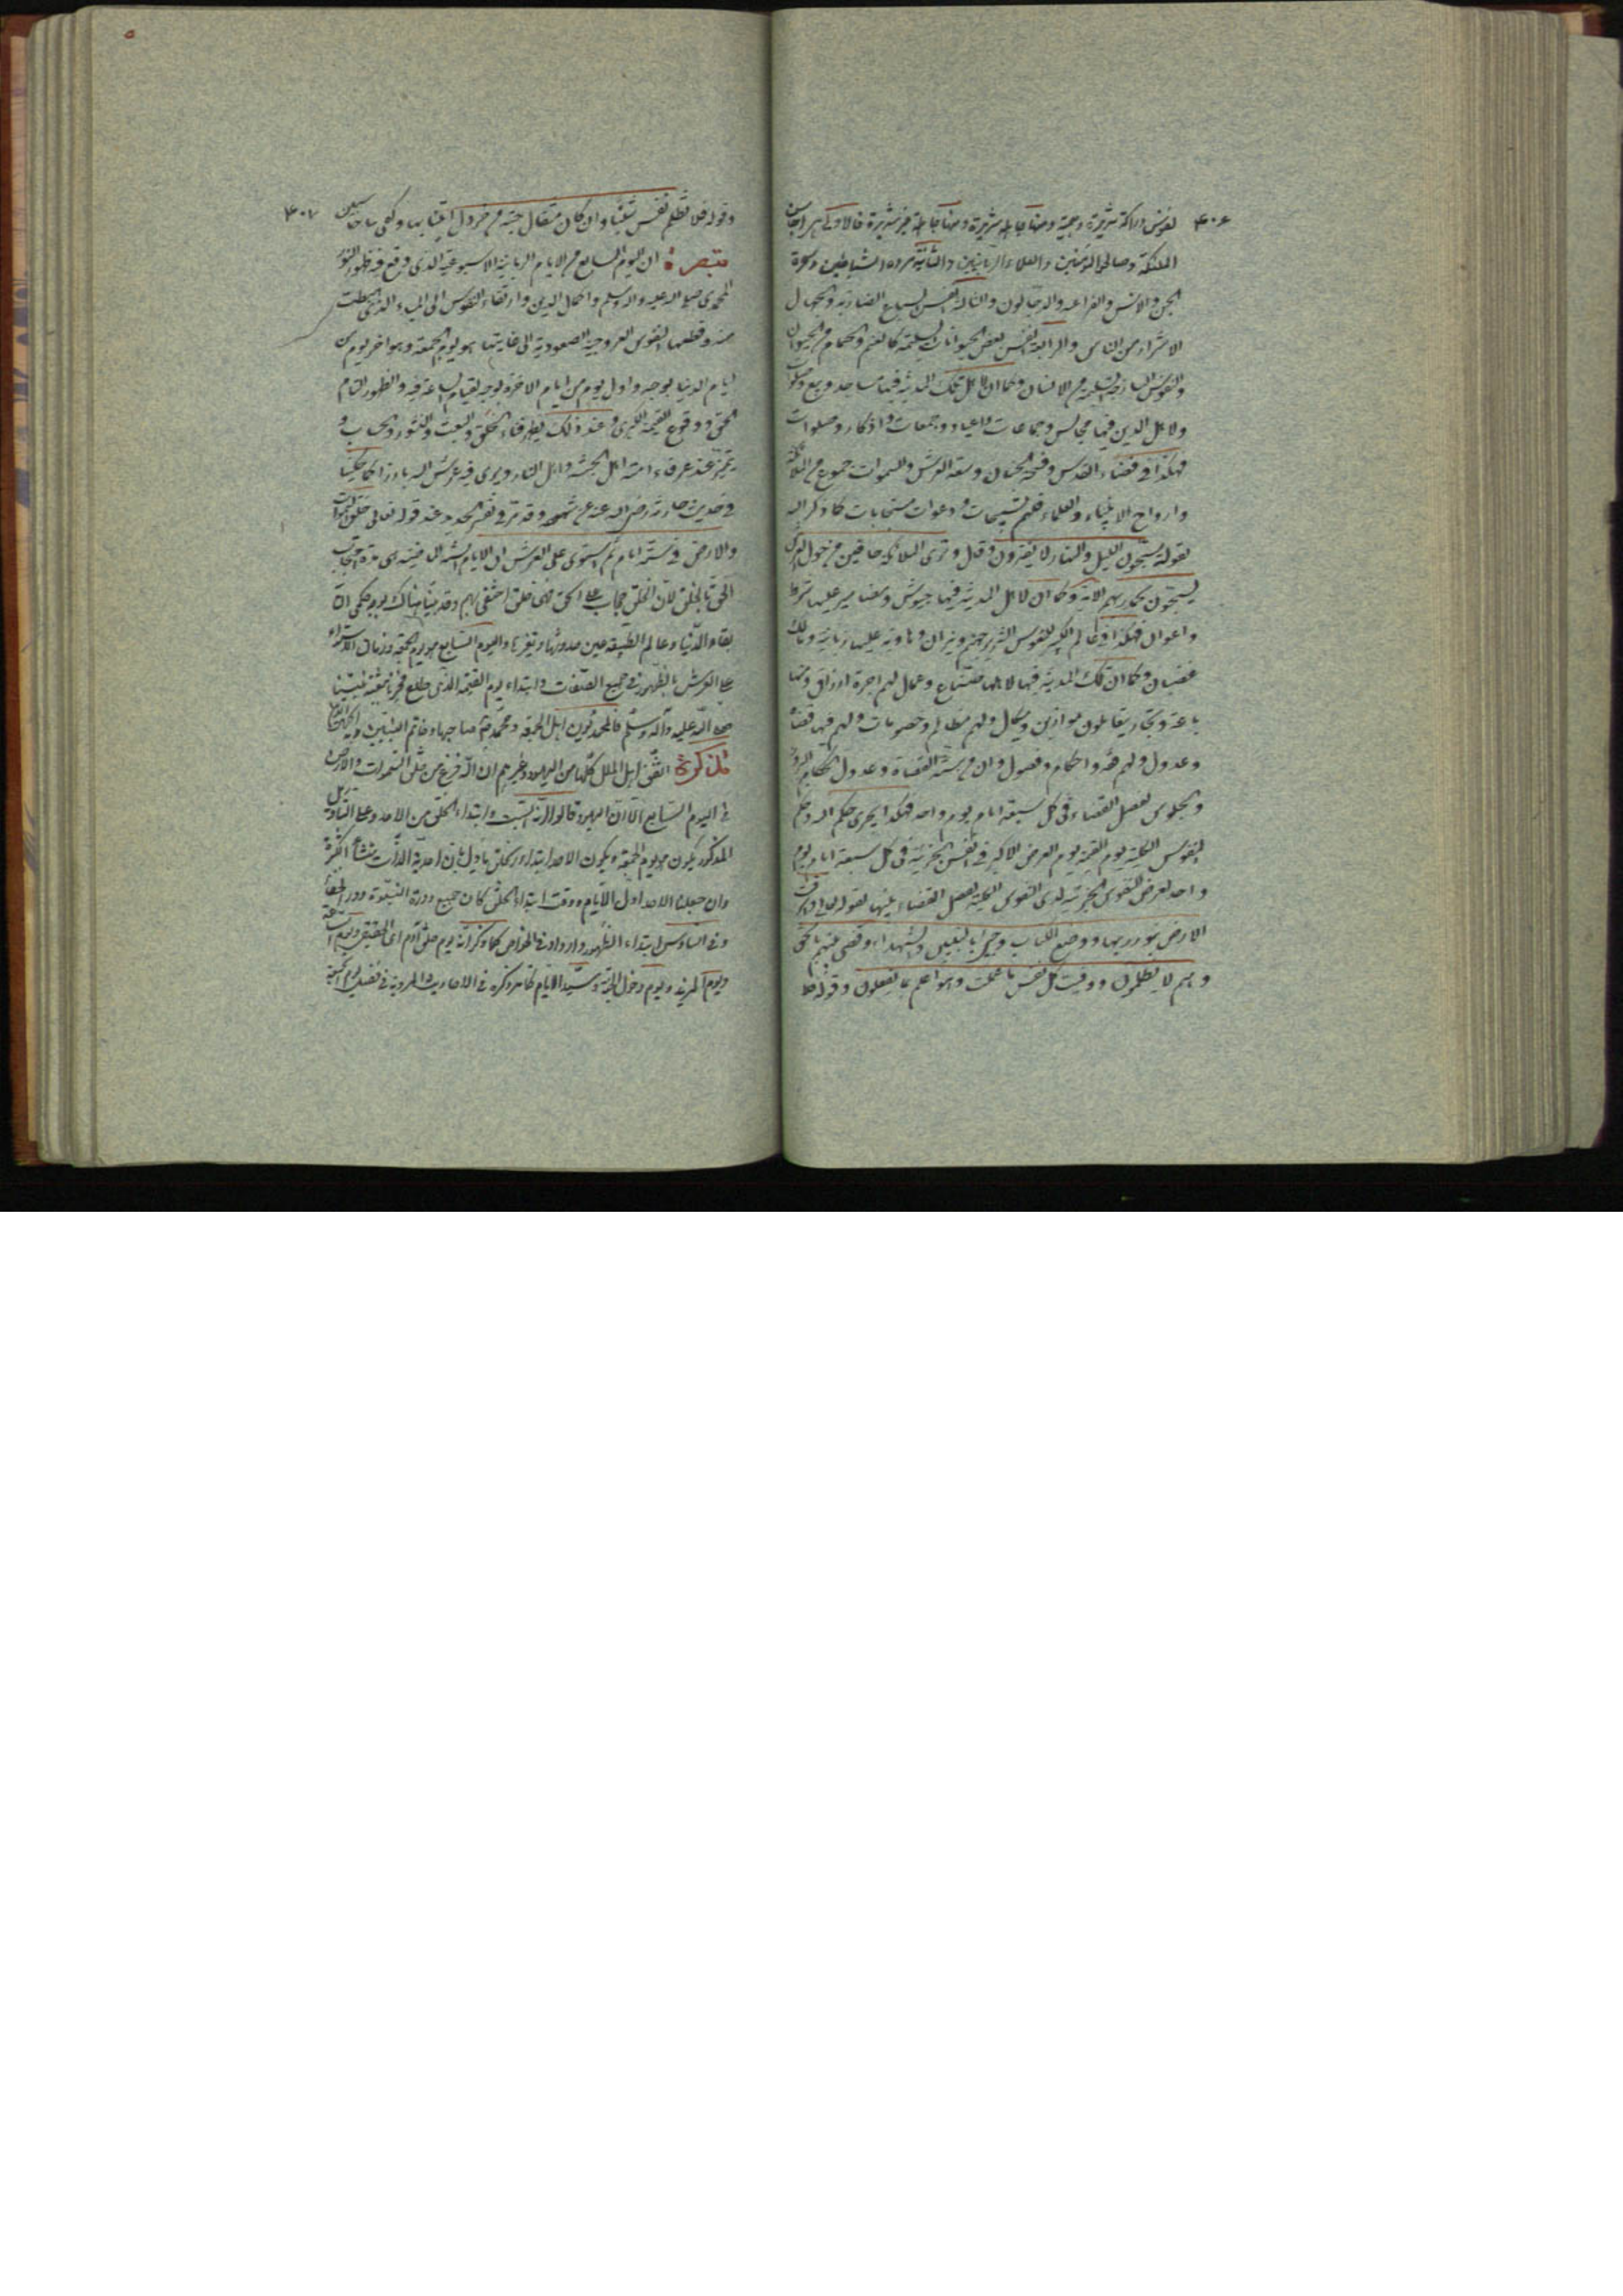 ۴۰۶
الملئكة وصالحی المؤمنین والعلماء الربانیین والثانیة مردة الشیاطین وسحرة
الجن والانس والفراعنة والدجالون والثالثة انفس السباع الضاریة والجهال
الاشرار من الناس والرابعة انفس بعض الحیوانات السلیمة کالغنم والحمام من الحیوان
والنفوس الساذجة السلیمة من الانسان وکما ان لاهل تلک المدینة فیها مساجد وبیع وصلوات
ولاهل الدین فیها مجالس وجماعات واعیاد وجمعات واذکار وصلوات
فهکذا فی فضاء القدس وفسحة الجنان وسعة العرش والسموات جموع من الملائکة
وارواح الانبیاء والعلماء فلهم تسبیحات ودعوات مستجابات کما ذکر الله
بقوله یسبحون اللیل والنهار لا یفترون وقال وتری الملائکة حافین من حول العرش
یسبحون بحمد ربهم الایة وکما ان لاهل المدینة فیها جیوش
واعوان فهکذا فی عالم الکبیر للنفوس الشریرة جهنم ونیران وهاویة علیها زبانیة ومالک
غضبان وکما ان تلک المدینة فیها لاهلها صناع وعمال لهم اجرة وارزاق ومنها
باعة وتجار یتعاملون بموازین ومکیال ولهم مظالم وخصومات ولهم فیها قضاة
وعدول ولهم فقه واحکام وفصول وان من سنة القضاة وعدول الحکام البروز
والجلوس لفصل القضاء فی کل سبعة ایام یوم واحد فهکذا یجری حکم الله وحکم
النفوس الکلیة یوم القیمة یوم العرض الاکبر فی انفس الجزئیة فی کل سبعة ایام یوم
واحد لعرض النفوس الجزئیة لدی النفوس الکلیة لفصل القضاء بینها لقوله تعالی واشرقت
الارض بنور ربها ووضع الکتاب وجیء بالنبیین والشهداء وقضی بینهم بالحق
وهم لا یظلمون ووفیت کل نفس ما عملت وهو اعلم بما یفعلون وقوله
۴۰۷
وقوله فلا تظلم نفس شیئا وان کان مثقال حبة من خردل اتینا بها وکفی بنا حاسبین
تبصرة ان الیوم السابع من الایام الربانیة الاسبوعیة الذی وقع فیه ظهور النور
المحمدی صلی الله علیه واله وسلم واکمال الدین وارتقاء النفوس الی المبدء الذی هبطت
منه وقطعها القوس العروجیة الصعودیة الی غایتها هو یوم الجمعة وهو اخر یوم من
ایام الدنیا بوجه واول یوم من ایام الاخرة بوجه لقیام الساعة فیه والظهور التام
الحق ووقوع القیمة الکبری وعند ذلک یظهر فناء الخلق والبعث والنشور والحساب و
یتمیز عند عرفاء امته اهل الجنة واهل النار ویری فیه عرش الله بارزا کما حکینا
فی حدیث حارثة رض الله عنه عن شهوده وقد مر فی تفسیر الحدید عند قوله تعالی خلق السموات
والارض فی ستة ایام ثم استوی علی العرش ان الایام الستة الماضیة هی مدة احتجاب
الحق بالخلق لان الخلق حجاب علی الحق فمتی خلق اختفی بهم وقد بینا هناک بوجه حکمی ان
بقاء الدنیا وعالم الطبیعة عین حدوثها وتغیرها والیوم السابع هو یوم الجمعة وزمان الاستواء
علی العرش بالظهور فی جمیع الصفات وابتداء یوم القیمة الذی طلع فجره ببعثة نبینا
صلی الله علیه وآله وسلم فالمحمدیون اهل الجمعة ومحمد ص صاحبها وخاتم النبیین
تذکرة اتفق اهل الملل کلها من الیهود وغیرهم ان الله فرغ من خلق السموات والارض
فی الیوم السابع الا ان الیهود قالوا انه السبت وابتداء الخلق من الاحد وعلی التاویل
المذکور یکون هو یوم الجمعة ویکون الاحد ابتداء الخلق یاول بان احدیة الذات منشأ الکثرة
وان جعلنا الاحد اول الایام ووقت ابتداء الخلق کان جمیع دورة النبوة دور الخفاء
وفی السادس ابتداء الظهور وازداد فی الخواص کما ذکر انه یوم خلق آدم ای الحقیقی ویوم الساعة
ویوم المزید ویوم دخول الجنة وسید الایام کما مر ذکره فی الاحادیث المرویة فی فضیلة یوم الجمعة